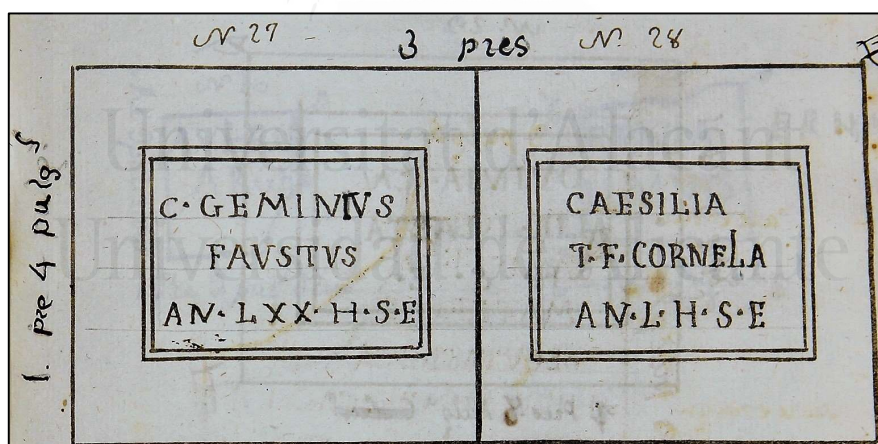 N 27
3 pies
N. 28
1. pie 4 pulg s
C · GEMINIVS
FAVSTVS
AN · LXX · H · S · E
CAESILIA
T · F · CORNELA
AN · L · H · S · E
Universitat d'Alacant
Universidad de Alicante